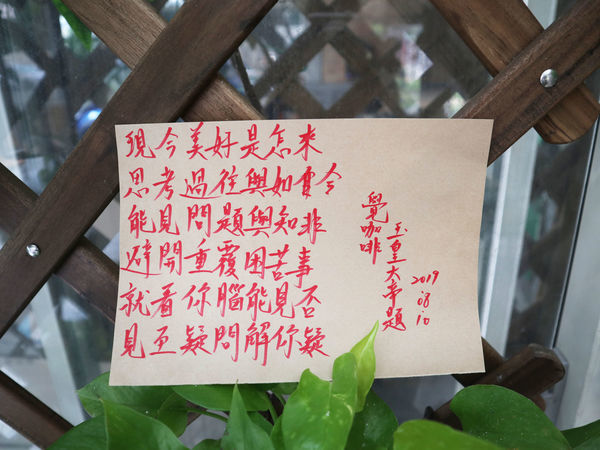 現今美好是怎來
思考過往與如今
能見問題與知非
避開重覆困苦事
就看你腦能見否
見至疑問解你疑
覺咖啡
玉皇大帝題
2019
.08
.10